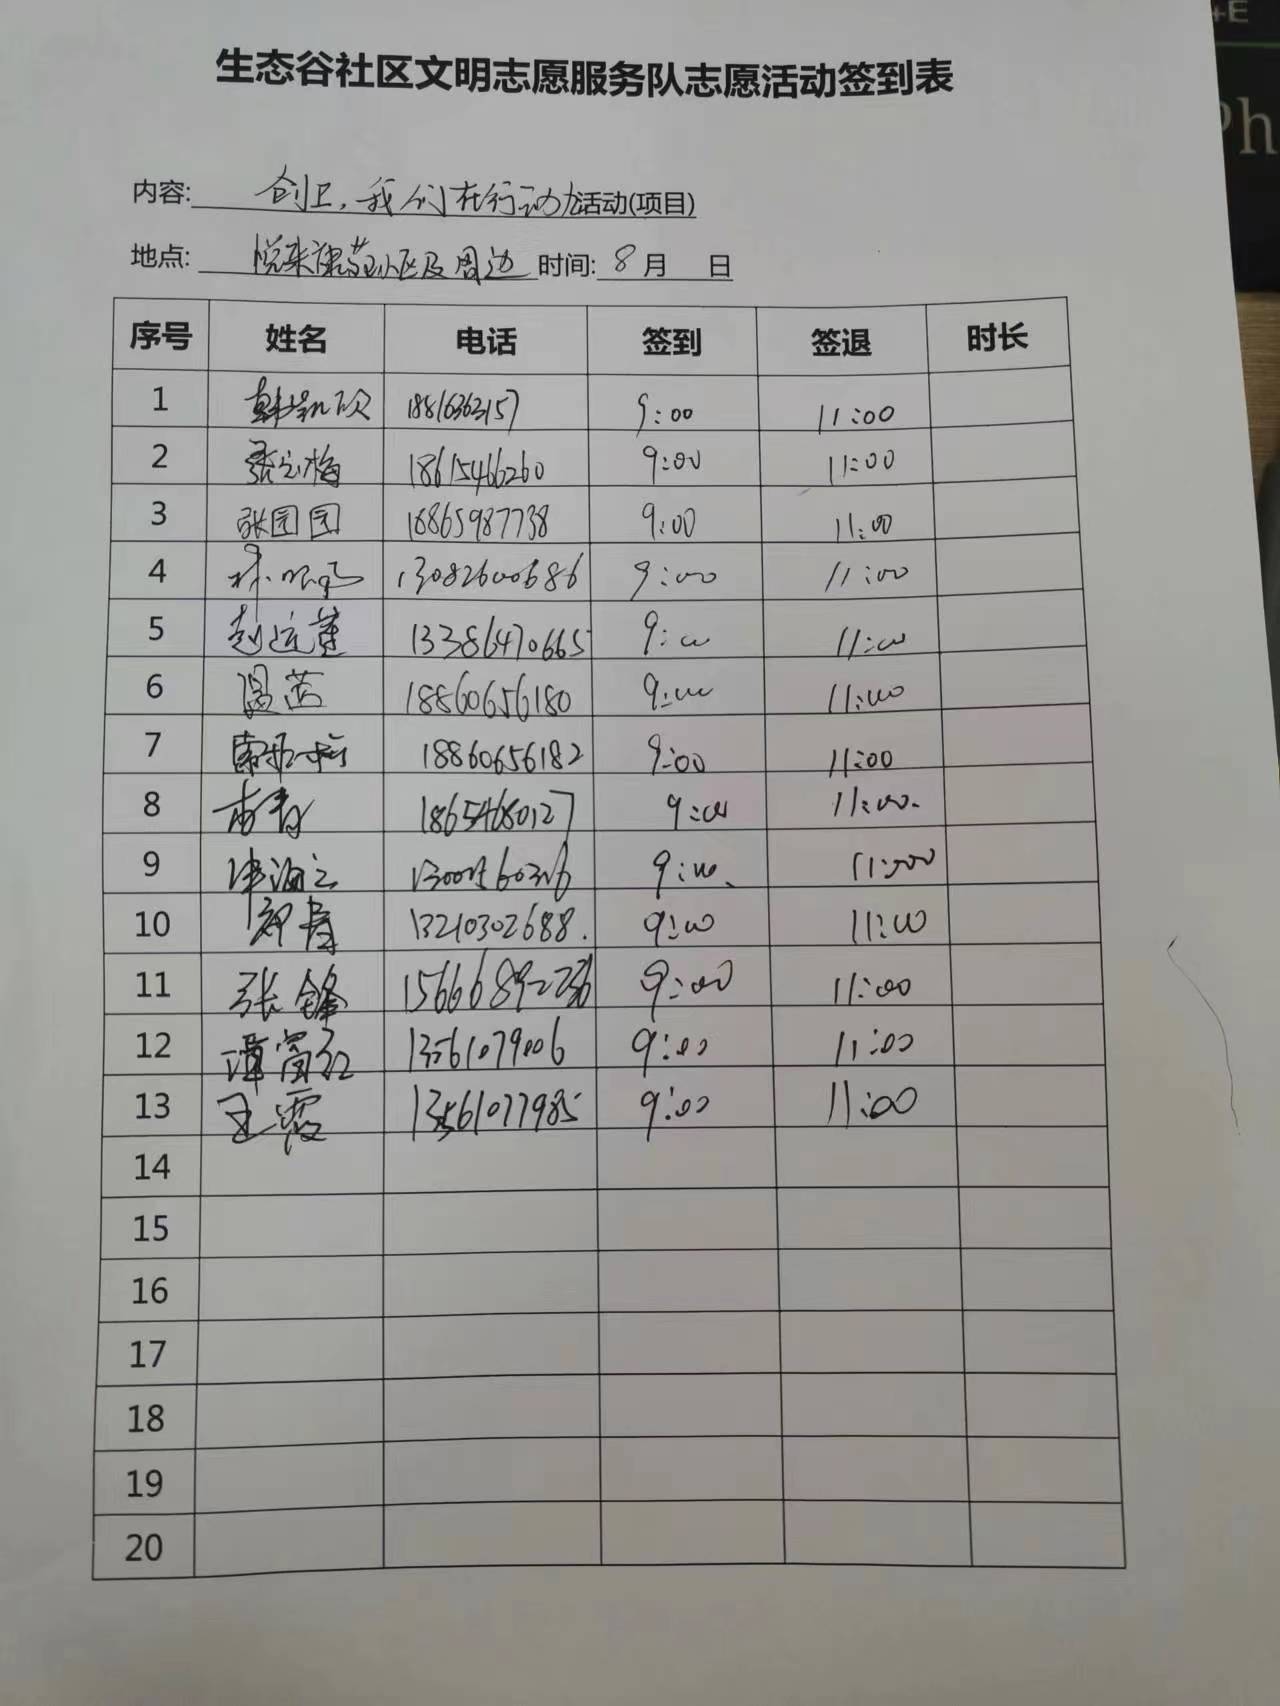 +E
Ph
生态谷社区文明志愿服务队志愿活动签到表
内容: 创卫,我们在行动 活动(项目)
地点: 悦来 小区及周边 时间: 8 月 日
序号 姓名 电话 签到 签退 时长
1 9:00 11:00
2 张 梅 18615466260 9:00 11:00
3 张园园 18865987738 9:00 11:00
4 林 13082600686 9:00 11:00
5 赵 莲 13386470665 9:00 11:00
6 温茜 18860656180 9:00 11:00
7 18860656182 9:00 11:00
8 18654680127 9:00 11:00
9 9:00 11:00
10 青 13210302688 9:00 11:00
11 张锋 9:00 11:00
12 谭富红 13561079006 9:00 11:00
13 王霞 13561077985 9:00 11:00
14
15
16
17
18
19
20